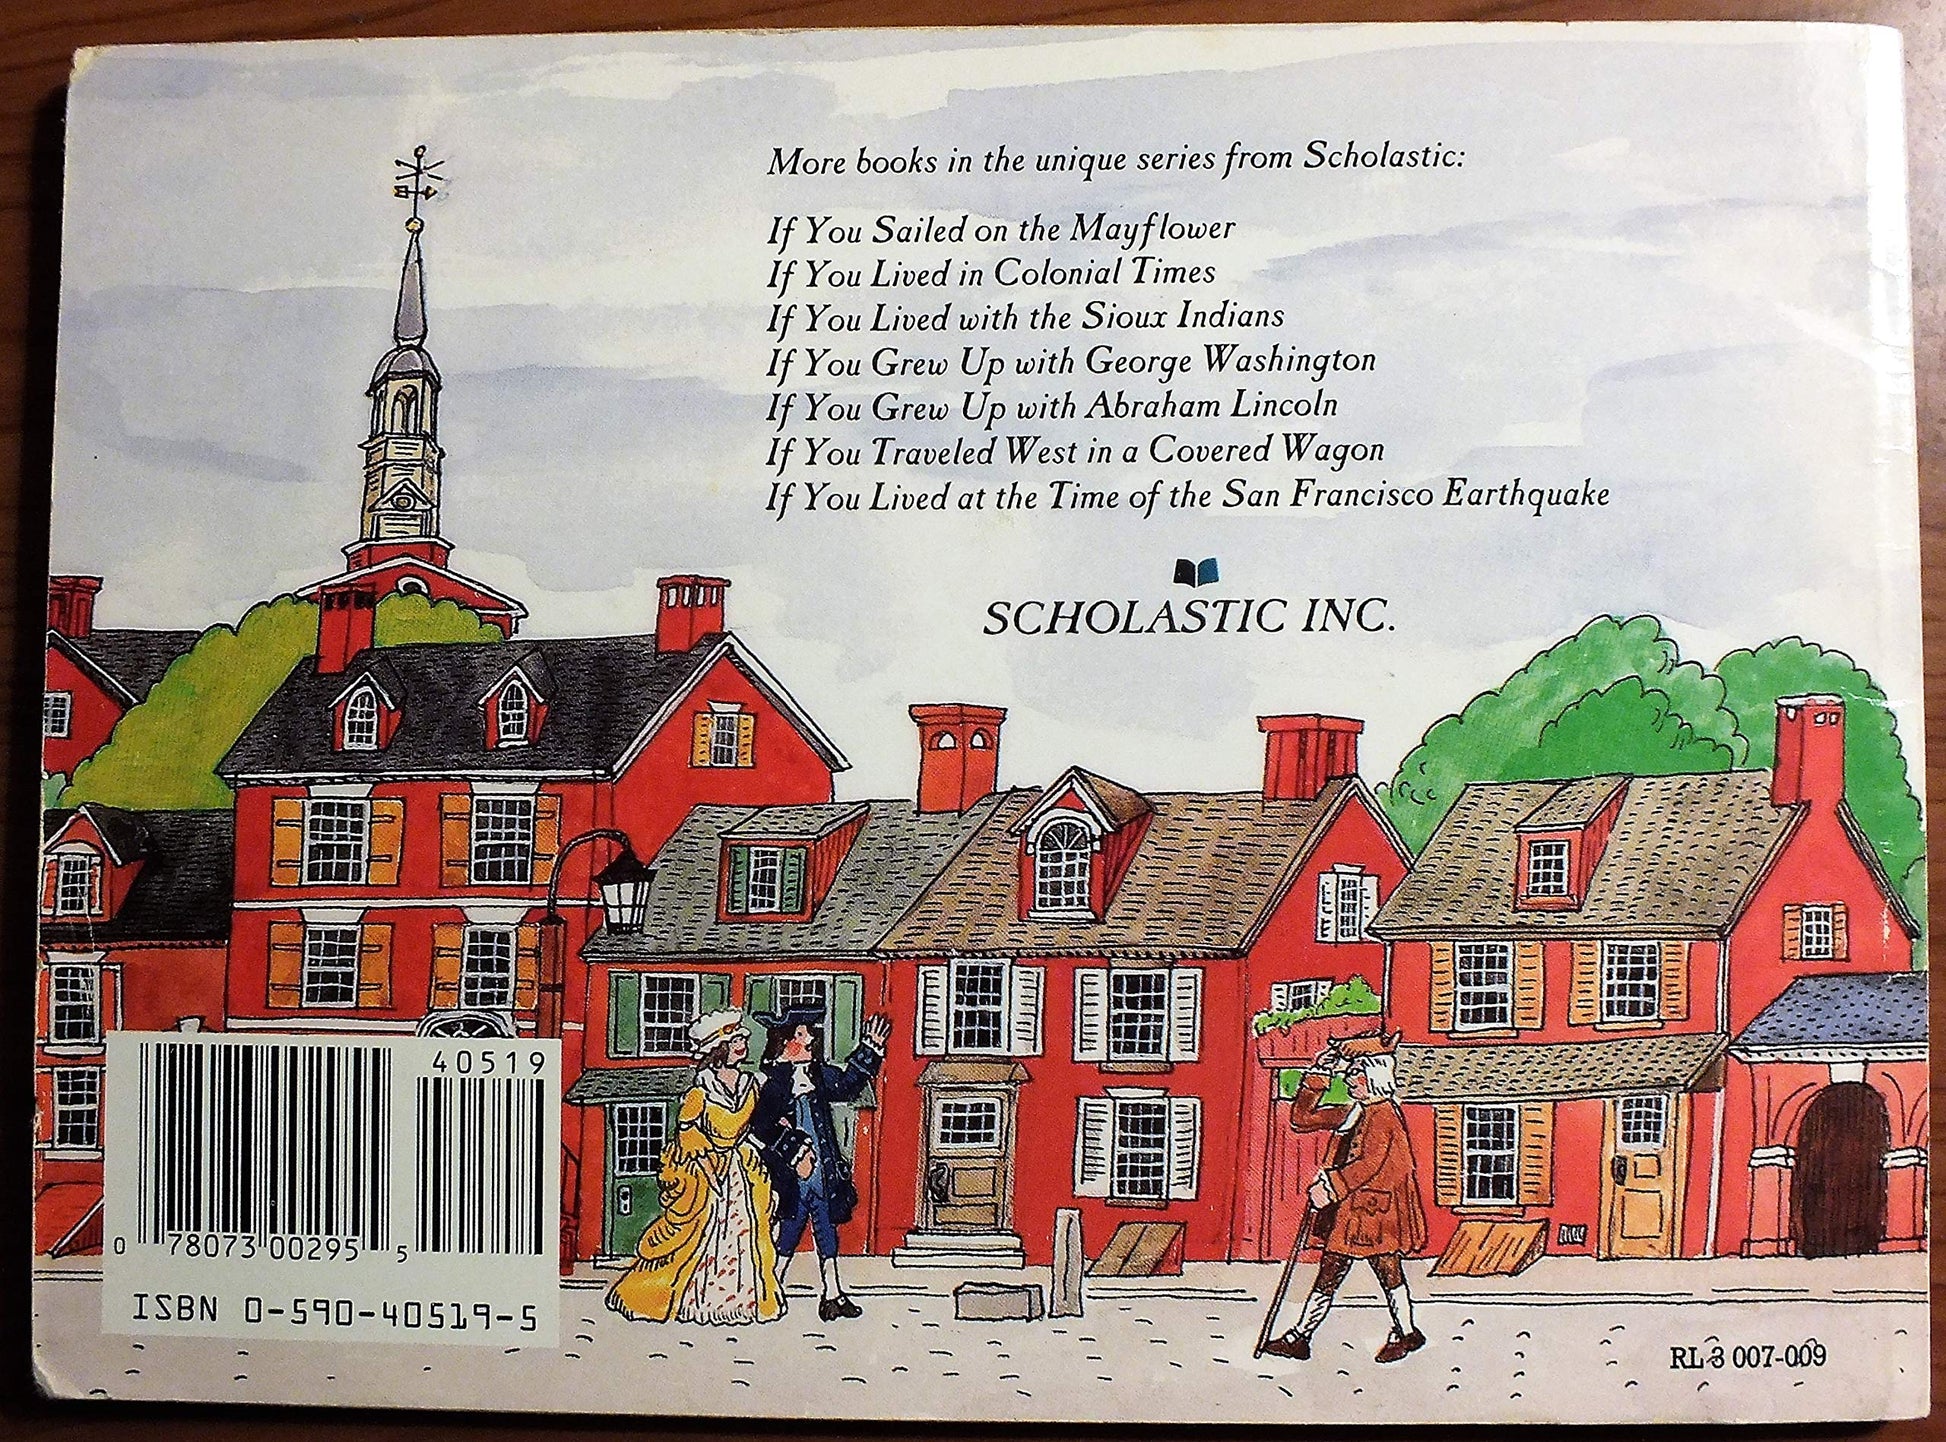 More books in the unique series from Scholastic:
If You Sailed on the Mayflower
If You Lived in Colonial Times
If You Lived with the Sioux Indians
If You Grew Up with George Washington
If You Grew Up with Abraham Lincoln
If You Traveled West in a Covered Wagon
If You Lived at the Time of the San Francisco Earthquake
SCHOLASTIC INC.
40519
0 78073 00295 5
ISBN 0-590-40519-5
RL 3 007-009